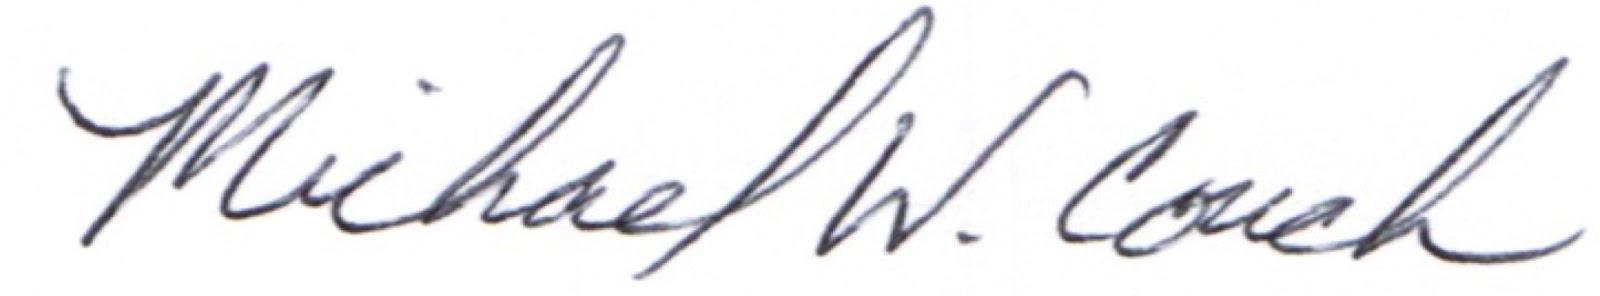 Michael W. Couch